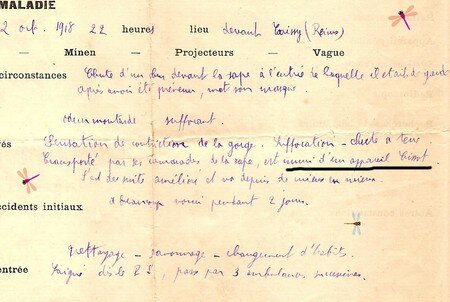 MALADIE
2 oct. 1918 22 heures lieu devant Taissy (Reims)
— Minen — Projecteurs — Vague
circonstances Chute d'un obus devant la sape à l'entrée de laquelle il était de garde
après avoir été prévenu, met son masque.
odeur moutarde suffocant.
Sensation de constriction de la gorge. Suffocation - chute à terre
transporté par ses camarades de la sape, est muni d'un appareil Tissot
S'est de suite amélioré et va depuis de mieux en mieux.
accidents initiaux
a beaucoup vomi pendant 2 jours.
nettoyage - savonnage - changement d'habits.
entrée Soigné dès le 2 5, passe par 3 ambulances successives.